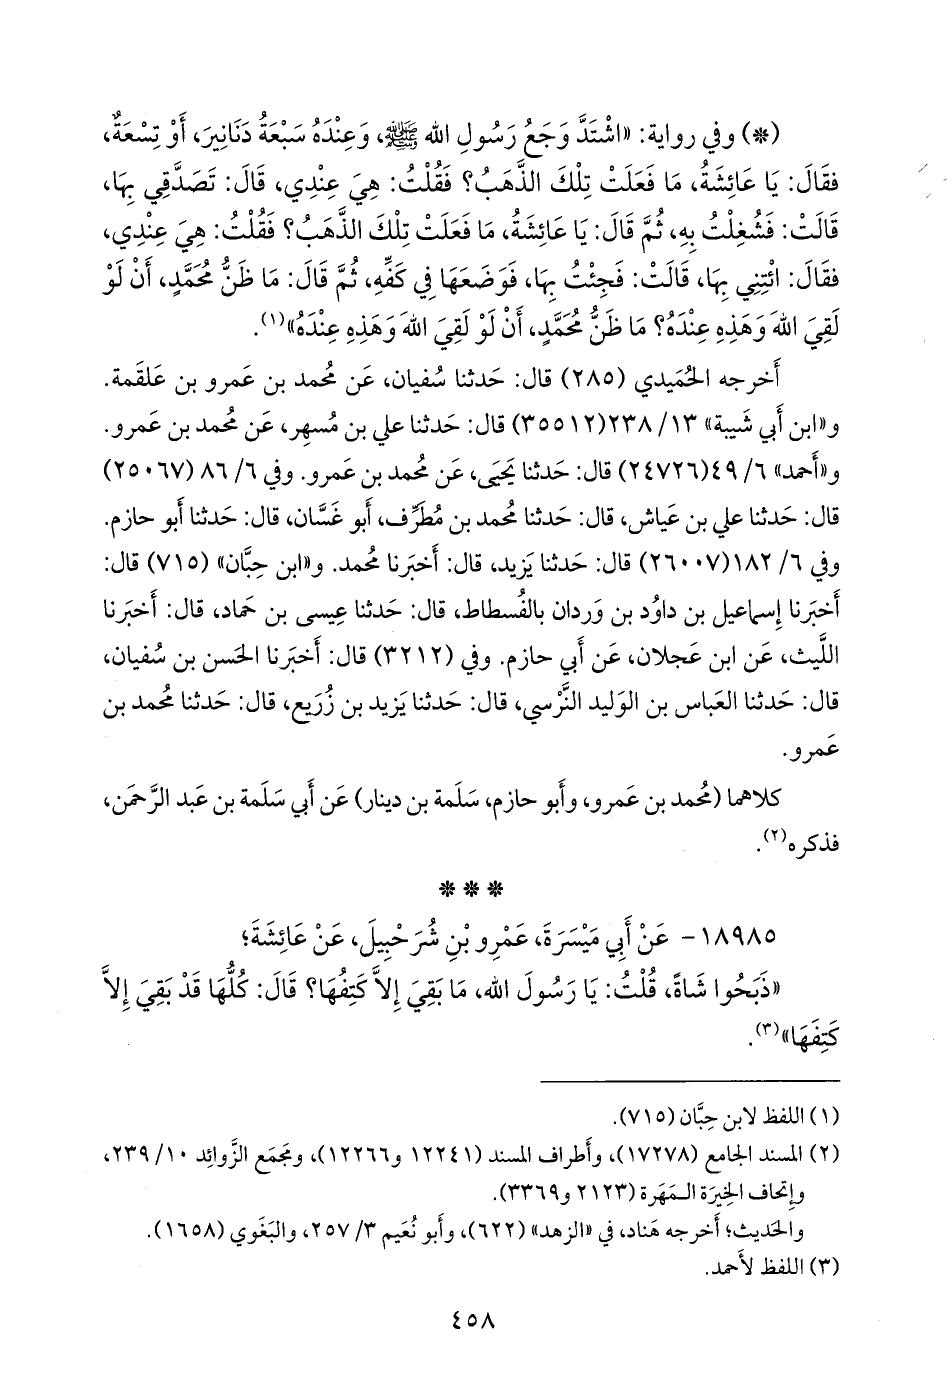 (*) وفي رواية: «اشْتَدَّ وَجَعُ رَسُولِ الله ﷺ، وَعِنْدَهُ سَبْعَةُ دَنَانِيرَ، أَوْ تِسْعَةٌ،
فَقَالَ: يَا عَائِشَةُ، مَا فَعَلَتْ تِلْكَ الذَّهَبُ؟ فَقُلْتُ: هِيَ عِنْدِي، قَالَ: تَصَدَّقِي بِهَا،
قَالَتْ: فَشُغِلْتُ بِهِ، ثُمَّ قَالَ: يَا عَائِشَةُ، مَا فَعَلَتْ تِلْكَ الذَّهَبُ؟ فَقُلْتُ: هِيَ عِنْدِي،
فَقَالَ: ائْتِنِي بِهَا، قَالَتْ: فَجِئْتُ بِهَا، فَوَضَعَهَا فِي كَفِّهِ، ثُمَّ قَالَ: مَا ظَنُّ مُحَمَّدٍ، أَنْ لَوْ
لَقِيَ اللهَ وَهَذِهِ عِنْدَهُ؟ مَا ظَنُّ مُحَمَّدٍ، أَنْ لَوْ لَقِيَ اللهَ وَهَذِهِ عِنْدَهُ»(١).
أَخرجه الحُمَيدي (٢٨٥) قال: حَدثنا سُفيان، عَن مُحمد بن عَمرو بن عَلقمة.
و«ابن أَبي شَيبة» ١٣/ ٢٣٨(٣٥٥١٢) قال: حَدثنا علي بن مُسهِر، عَن مُحمد بن عَمرو.
و«أَحمد» ٦/ ٤٩(٢٤٧٢٦) قال: حَدثنا يَحيَى، عَن مُحمد بن عَمرو. وفي ٦/ ٨٦ (٢٥٠٦٧)
قال: حَدثنا علي بن عَياش، قال: حَدثنا مُحمد بن مُطَرِّف، أَبو غَسَّان، قال: حَدثنا أَبو حازم.
وفي ٦/ ١٨٢(٢٦٠٠٧) قال: حَدثنا يَزيد، قال: أَخبَرنا مُحمد. و«ابن حِبَّان» (٧١٥) قال:
أَخبَرنا إِسماعيل بن داوُد بن وَردان بالفُسطاط، قال: حَدثنا عِيسى بن حَماد، قال: أَخبَرنا
اللَّيث، عَن ابن عَجلان، عَن أَبي حازم. وفي (٣٢١٢) قال: أَخبَرنا الحَسن بن سُفيان،
قال: حَدثنا العَباس بن الوَليد النَّرْسي، قال: حَدثنا يَزيد بن زُرَيع، قال: حَدثنا مُحمد بن
عَمرو.
كلاهما (مُحمد بن عَمرو، وأَبو حازم، سَلَمة بن دينار) عَن أَبي سَلَمة بن عَبد الرَّحمَن،
فذكره(٢).
* * *
١٨٩٨٥- عَنْ أَبِي مَيْسَرَةَ، عَمْرِو بْنِ شُرَحْبِيلَ، عَنْ عَائِشَةَ؛
«ذَبَحُوا شَاةً، قُلْتُ: يَا رَسُولَ الله، مَا بَقِيَ إِلاَّ كَتِفُهَا؟ قَالَ: كُلُّهَا قَدْ بَقِيَ إِلاَّ
كَتِفَهَا»(٣).
(١) اللفظ لابن حِبَّان (٧١٥).
(٢) المسند الجامع (١٧٢٧٨)، وأَطراف المسند (١٢٢٤١ و١٢٢٦٦)، ومَجمَع الزَّوائِد ١٠/ ٢٣٩،
وإِتحاف الخِيَرَة المَهَرة (٢١٢٣ و٣٣٦٩).
والحَديث؛ أَخرجه هَناد، في «الزهد» (٦٢٢)، وأَبو نُعَيم ٣/ ٢٥٧، والبَغَوي (١٦٥٨).
(٣) اللفظ لأَحمد.
٤٥٨